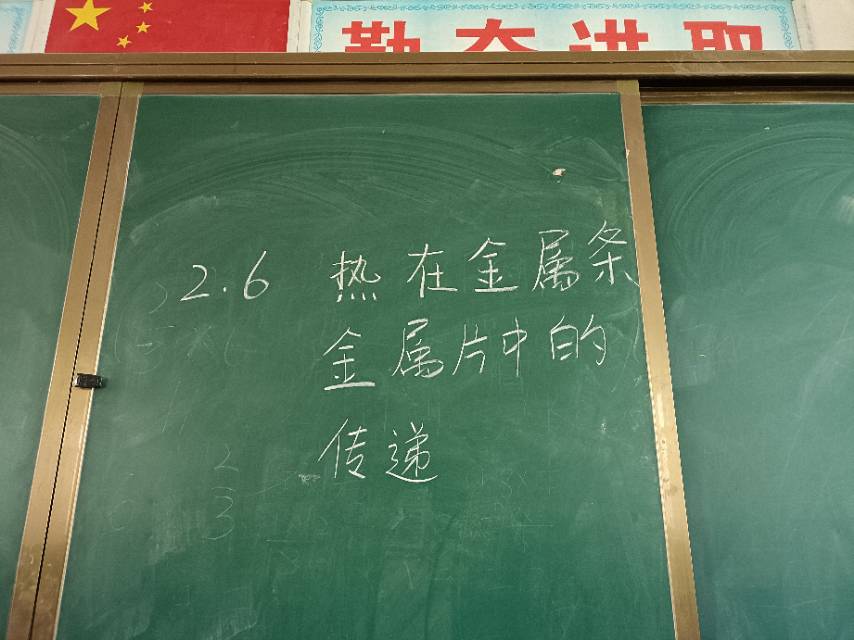 勤奋进取
2.6 热在金属条
金属片中的
传递
2
3